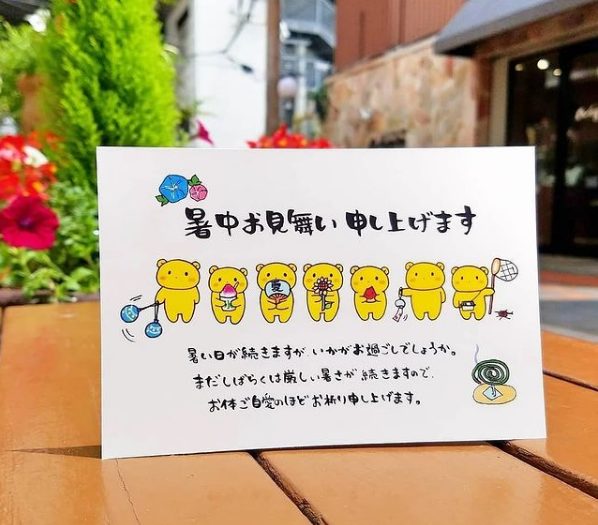 暑中お見舞い申し上げます
夏
暑い日が続きますが、いかがお過ごしでしょうか。
まだしばらくは厳しい暑さが続きますので、
お体ご自愛のほどお祈り申し上げます。